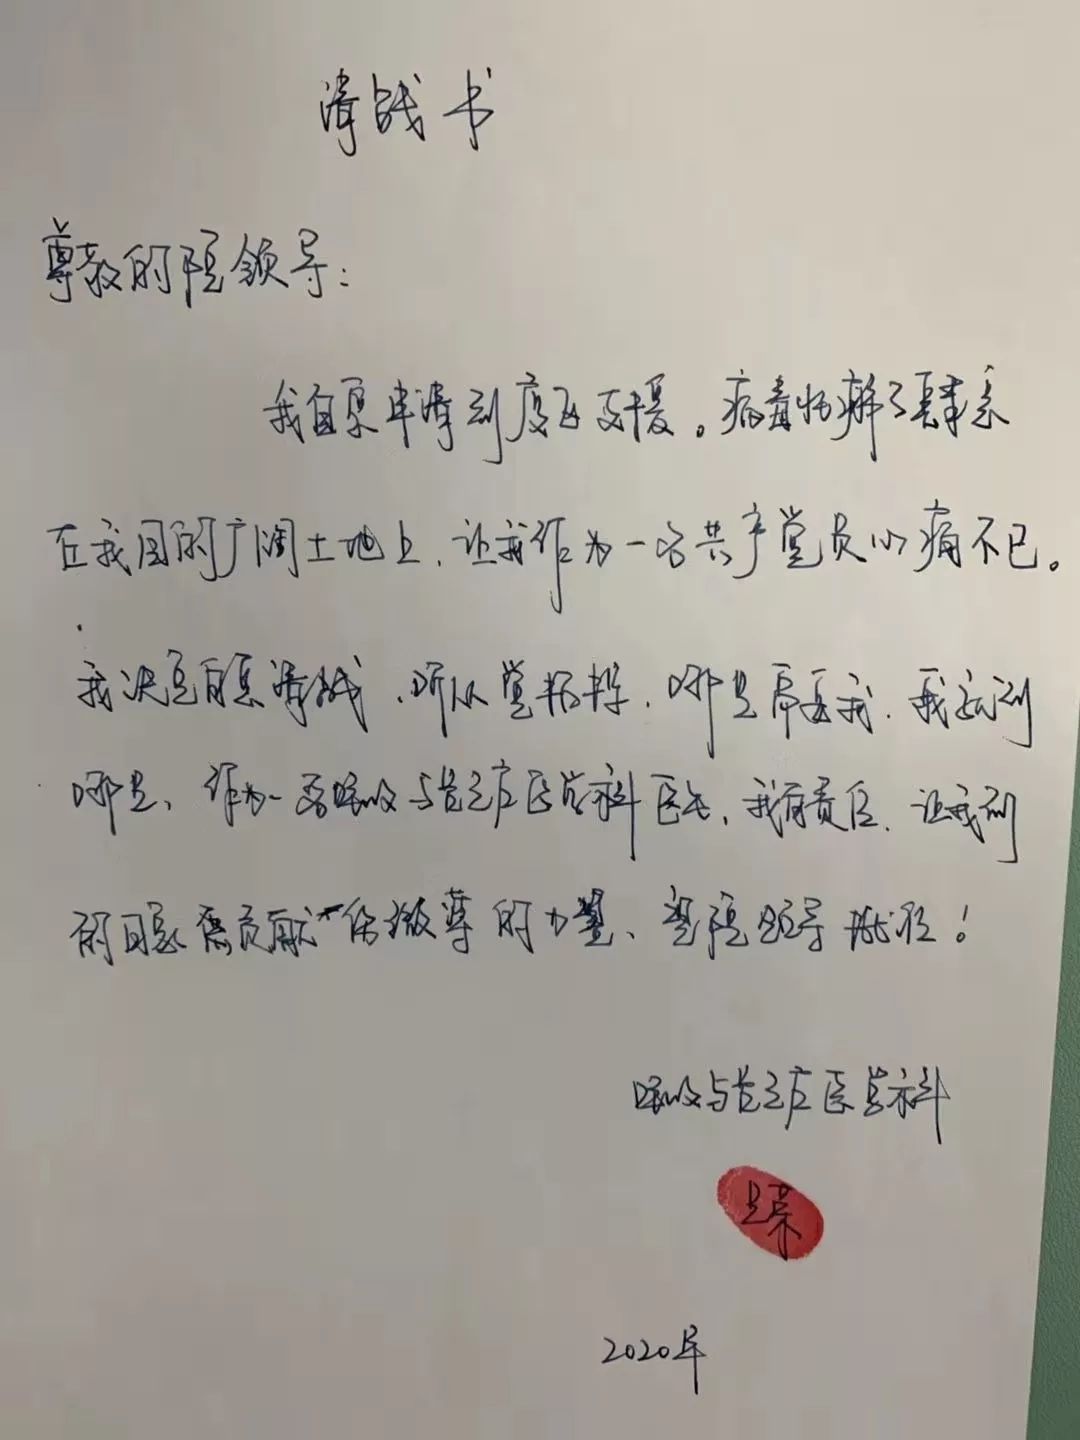 请战书
尊敬的院领导：
我自愿申请到疫区支援。病毒肆虐
在我国的广阔土地上，让我作为一名共产党员心痛不已。
我决定自愿请战，听从党指挥，哪里需要我，我就到
哪里，作为一名呼吸与危重症医学科医生，我有责任，让我到
前线去贡献一份微薄的力量，望院领导批准！
呼吸与危重症医学科
2020年